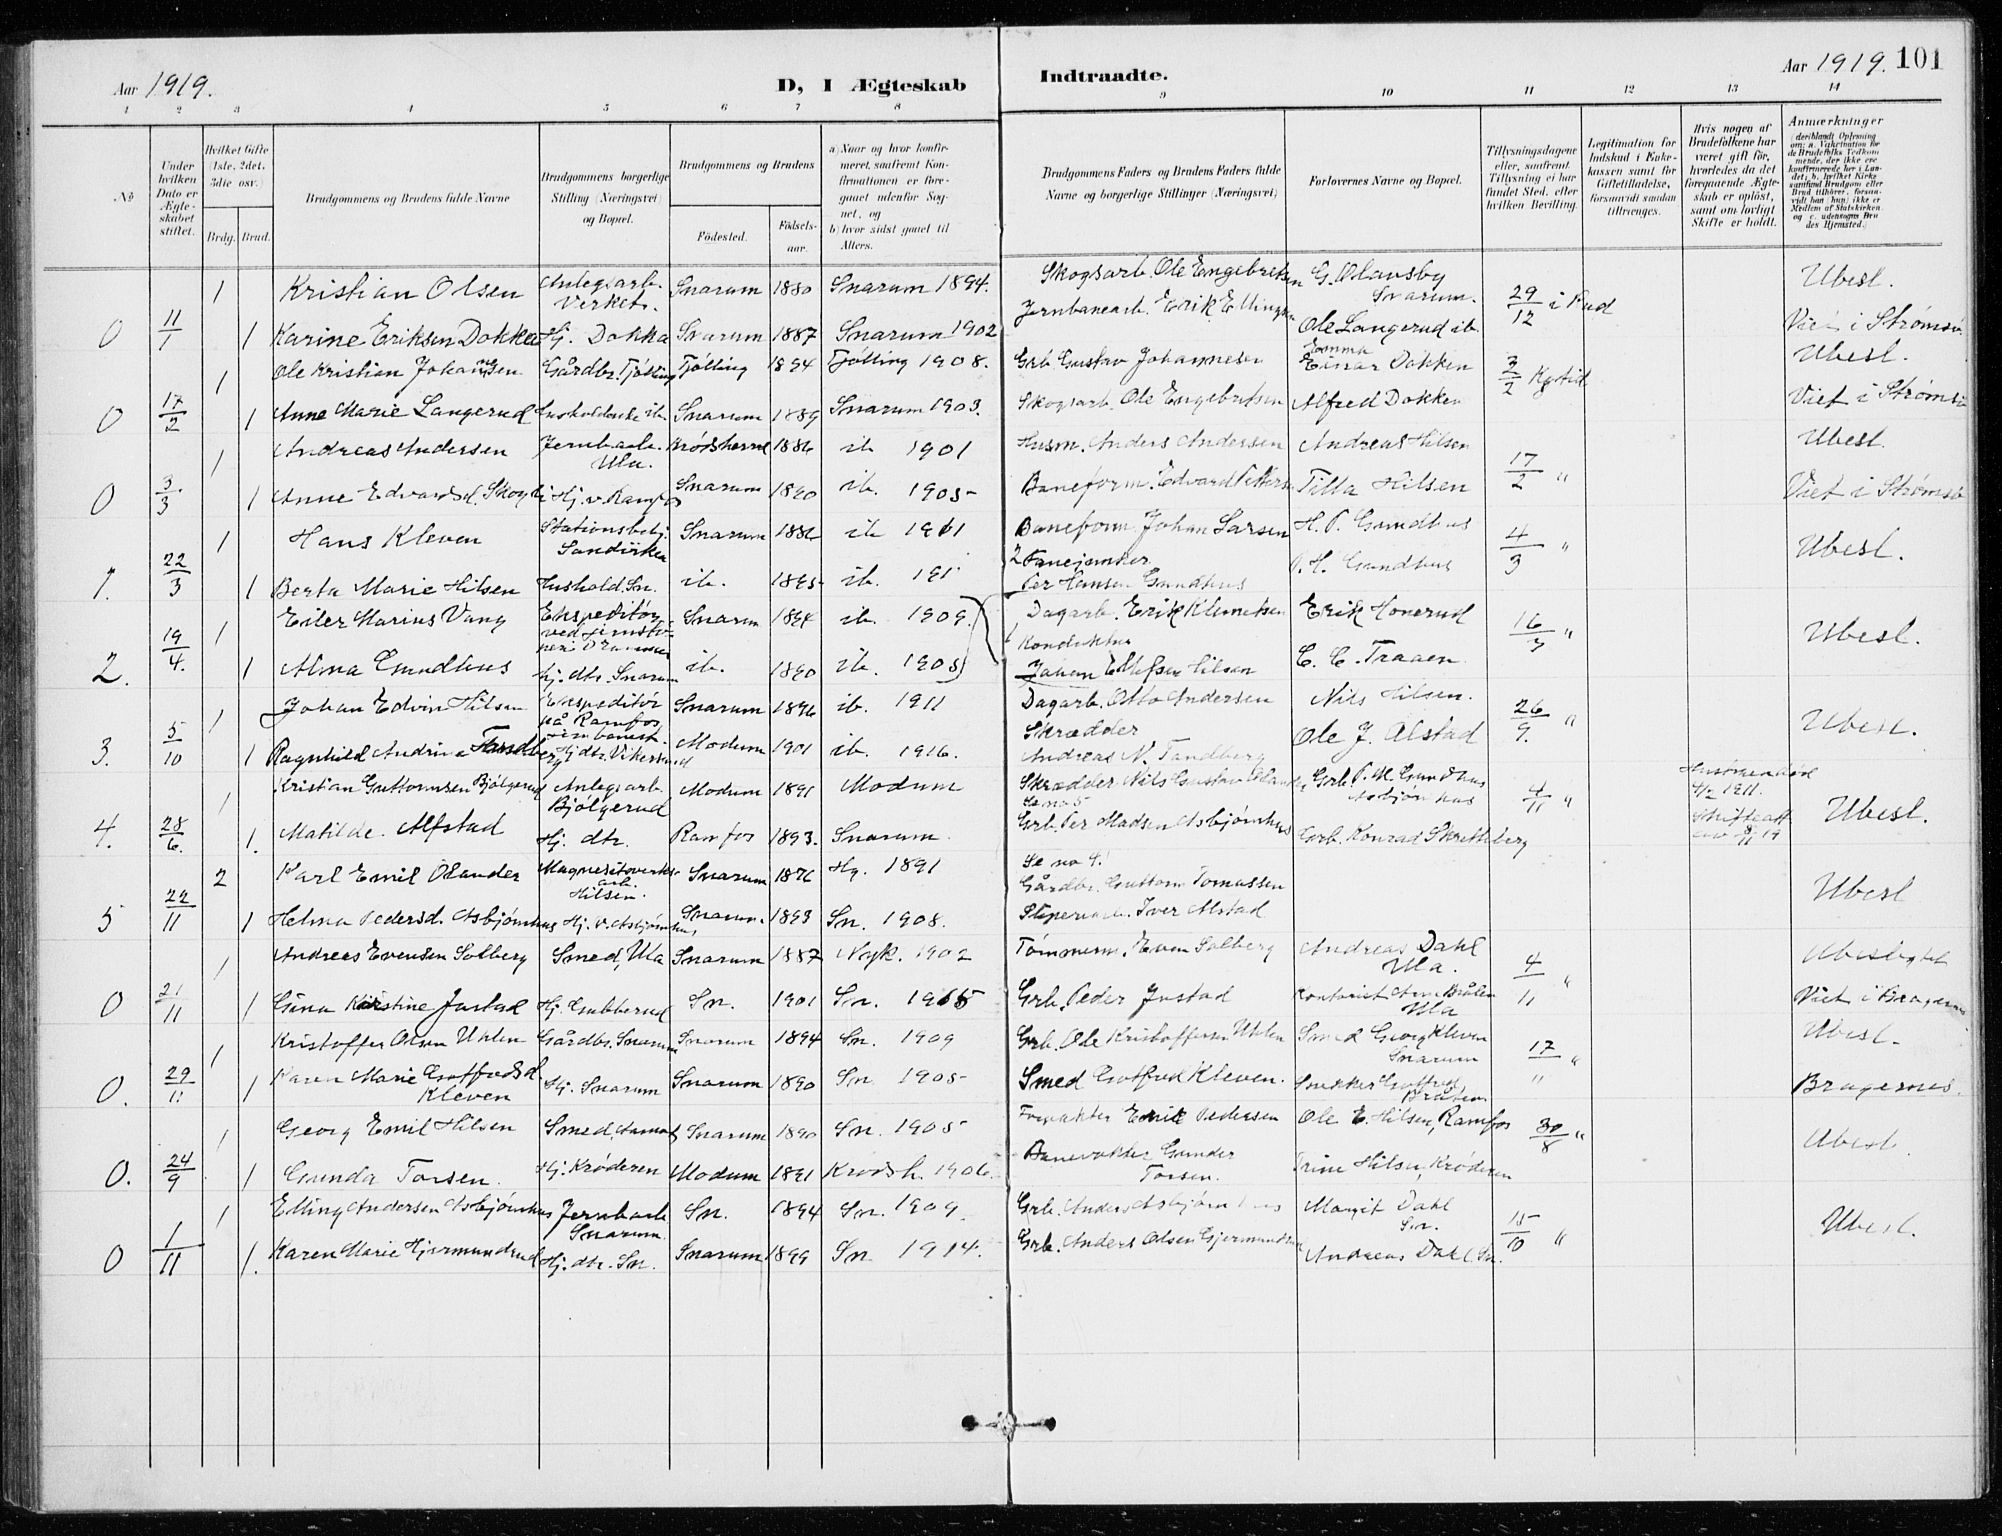 Aar 1919.
D, I Ægteskab
Indtraadte.
Aar 1919. 101
1 2 3 4 5 6 7 8 9 10 11 12 13 14
No
Under hvilken Dato er Ægteskabet stiftet.
Hvilket Gifte (1ste, 2det, 3die osv.)
Brdg. Brud.
Brudgommens og Brudens fulde Navne
Brudgommens borgerlige Stilling (Næringsvei) og Bopæl.
Brudgommens og Brudens
Fødested.
Fødselsaar.
a) Naar og hvor konfirmeret, saafremt Konfirmationen er foregaaet udenfor Sognet, og
b) hvor sidst gaaet til Alters.
Brudgommens Faders og Brudens Faders fulde Navne og borgerlige Stillinger (Næringsvei)
Forlovernes Navne og Bopæl.
Tillysningsdagene eller, saafremt Tillysning ei har fundet Sted, efter hvilken Bevilling.
Legitimation for Indskud i Enkekassen samt for Giftetilladelse, forsaavidt saadan tiltrænges.
Hvis nogen af Brudefolkene har været gift før, hvorledes da det foregaaende Ægteskab er opløst, samt om lovligt Skifte er holdt.
Anmærkninger
1 Kristian Olsen Anlegsarb. Verket. Snarum 1880 Snarum 1894. Skogsarb. Ole Engebretsen G. Olavsby Snarum. 29/12 i Rud Ubesl.
0 11/1 1 Karine Eriksen Dokka Hj. Dokka Snarum 1887 Snarum 1902 Jernbanearb. Erik Ole Langerud ib. Viet i Strømsø
1 Ole Kristian Johannesen Gårdbr. Tjølling Tjølling 1894 Tjølling 1908. Grb. Gustav Johannesen Einar Dokken 2/2 Ubesl.
0 17/2 1 Anne Marie Langerud Husholderske ib. Snarum 1889 Snarum 1903. Skogsarb. Ole Engebretsen Alfred Dokken Viet i Strømsø
1 Andreas Andersen Jernbarb. Ula. Krødsherred 1886 ib 1901 Husm. Anders Andersen Andreas Hilsen 17/2 " Ubesl.
0 3/3 1 Anne Edvardsd. Hj. v. Ramfos Snarum 1890 ib. 1905 Baneform. Edvard Tilla Hilsen Viet i Strømsø
1 Hans Kleven Stationsbetj. Snarum 1886 ib 1901 Baneform. Johan Larsen H. P. Gundhus 4/3 " Ubesl.
1. 22/3 1 Berta Marie Hilsen Hushold. Sn. ib. 1895 ib. 2 Per Hansen Gundhus P. H. Gundhus
1 Eiler Marius Vang Ekspeditør Snarum 1894 ib. 1909. Dagarb. Erik Klemetsen Erik Honerud 16/3 " Ubesl.
2. 19/4. 1 Alma Gundhus hj. dtr. Snarum ib. 1890 ib. 1905 1 Konduktør Johan Hilsen C. C. Traaen
1 Johan Edvin Hilsen Ekspeditør på Ramfos Snarum 1896 ib. 1911 Dagarb. Otto Andersen Nils Hilsen. 26/9. " Ubesl.
3. 5/10 1 Ragnhild Andrine Tandberg Hj. dtr. Vikersund Modum 1901 ib. 1916. Skrædder Andreas N. Tandberg Ole J. Alstad
1 Kristian Guttormsen Bjølgerud Anlegsarb. Bjølgerud Modum 1891 Modum Skrædder Nils Gustav Olander Se no 5 Grb. P. M. Gundhus Asbjørnhus 4/11 " Hustruen død 1911. Ubesl.
4. 28/6. 1. Matilde Alfstad Hj. dtr. Ramfos 1893. Snarum. Grb. Per Madsen Asbjørnhus Grb. Konrad Skretteberg
2 Karl Emil Olander Magnesitverksarb. Hilsen. Snarum 1876 Hg. 1891 Se no 4. Gårdbr. Guttorm Tomassen Ubesl
5 22/11 1 Helma Pedersd. Asbjørnhus Hj. v. Asbjørnhus Snarum. 1893 Sn. 1908. Sliperiarb. Iver Alstad
1 Andreas Evensen Solberg Smed, Ula Snarum 1887 Nyk. 1902 Tømmerm. Even Solberg Andreas Dahl Ula. 4/11 " Ubeslegtet
0 21/11 1 Gina Kristine Justad Hj. Gubberud Sn. 1901 Sn. 1915 Grb. Peder Justad Kontorist Arne Bråten Ula Viet i Bragernes
1 Kristoffer Olsen Uhlen Gårdbr. Snarum Snarum 1894 Sn. 1909 Grb. Ole Kristoffersen Uhlen Smed Georg Kleven Snarum 17/11 " Ubesl.
0. 29/11 1 Karen Marie Gotfredsd. Kleven Hj. Snarum Snarum 1890 Sn. 1905 Smed Gotfred Kleven. Snekker Gotfred Bråten Bragernes.
1 Georg Emil Hilsen Smed, Snarum 1890 Sn. 1905 Emil Pedersen Ole E. Hilsen, Ramfos 30/8 " Ubesl.
0. 24/9 1 Gunda Torsen. Hj. Krøderen Modum 1891 Krødsh. 1906. Banevokter Gunder Torsen. Trine Hilsen, Krøderen
1 Elling Andersen Asbjørnhus Jernbarb Snarum Sn. 1894 Sn. 1909. Grb. Anders Asbjørnhus Margit Dahl Sn. 15/10 " Ubesl.
0 1/11 1. Karen Marie Hjermundrud Hj. dtr. Sn. Snarum 1899 Sn. 1914. Grb. Anders Olsen Gjermundrud Andreas Dahl Sn.